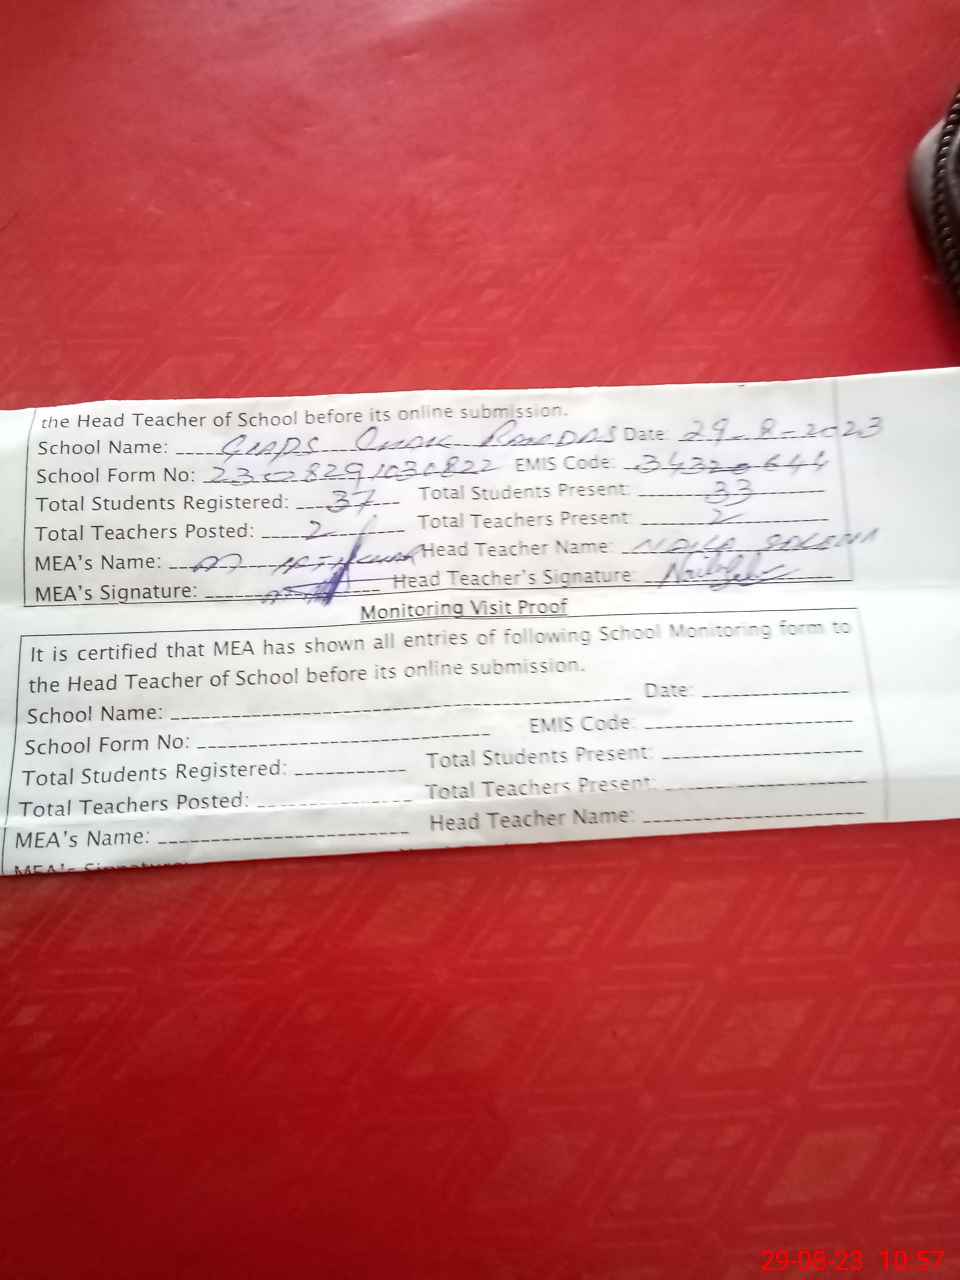 the Head Teacher of School before its online submission.
School Name: GMPS Chak Ramdas Date: 29-8-2023
School Form No: EMIS Code: 34320644
Total Students Registered: 37 Total Students Present: 33
Total Teachers Posted: 2 Total Teachers Present: 2
MEA's Name: Head Teacher Name: NAILA
MEA's Signature: Head Teacher's Signature:
Monitoring Visit Proof
It is certified that MEA has shown all entries of following School Monitoring form to
the Head Teacher of School before its online submission.
School Name: Date:
School Form No: EMIS Code:
Total Students Registered: Total Students Present:
Total Teachers Posted: Total Teachers Present:
MEA's Name: Head Teacher Name:
MEA's Signature:
29-08-23 10:57